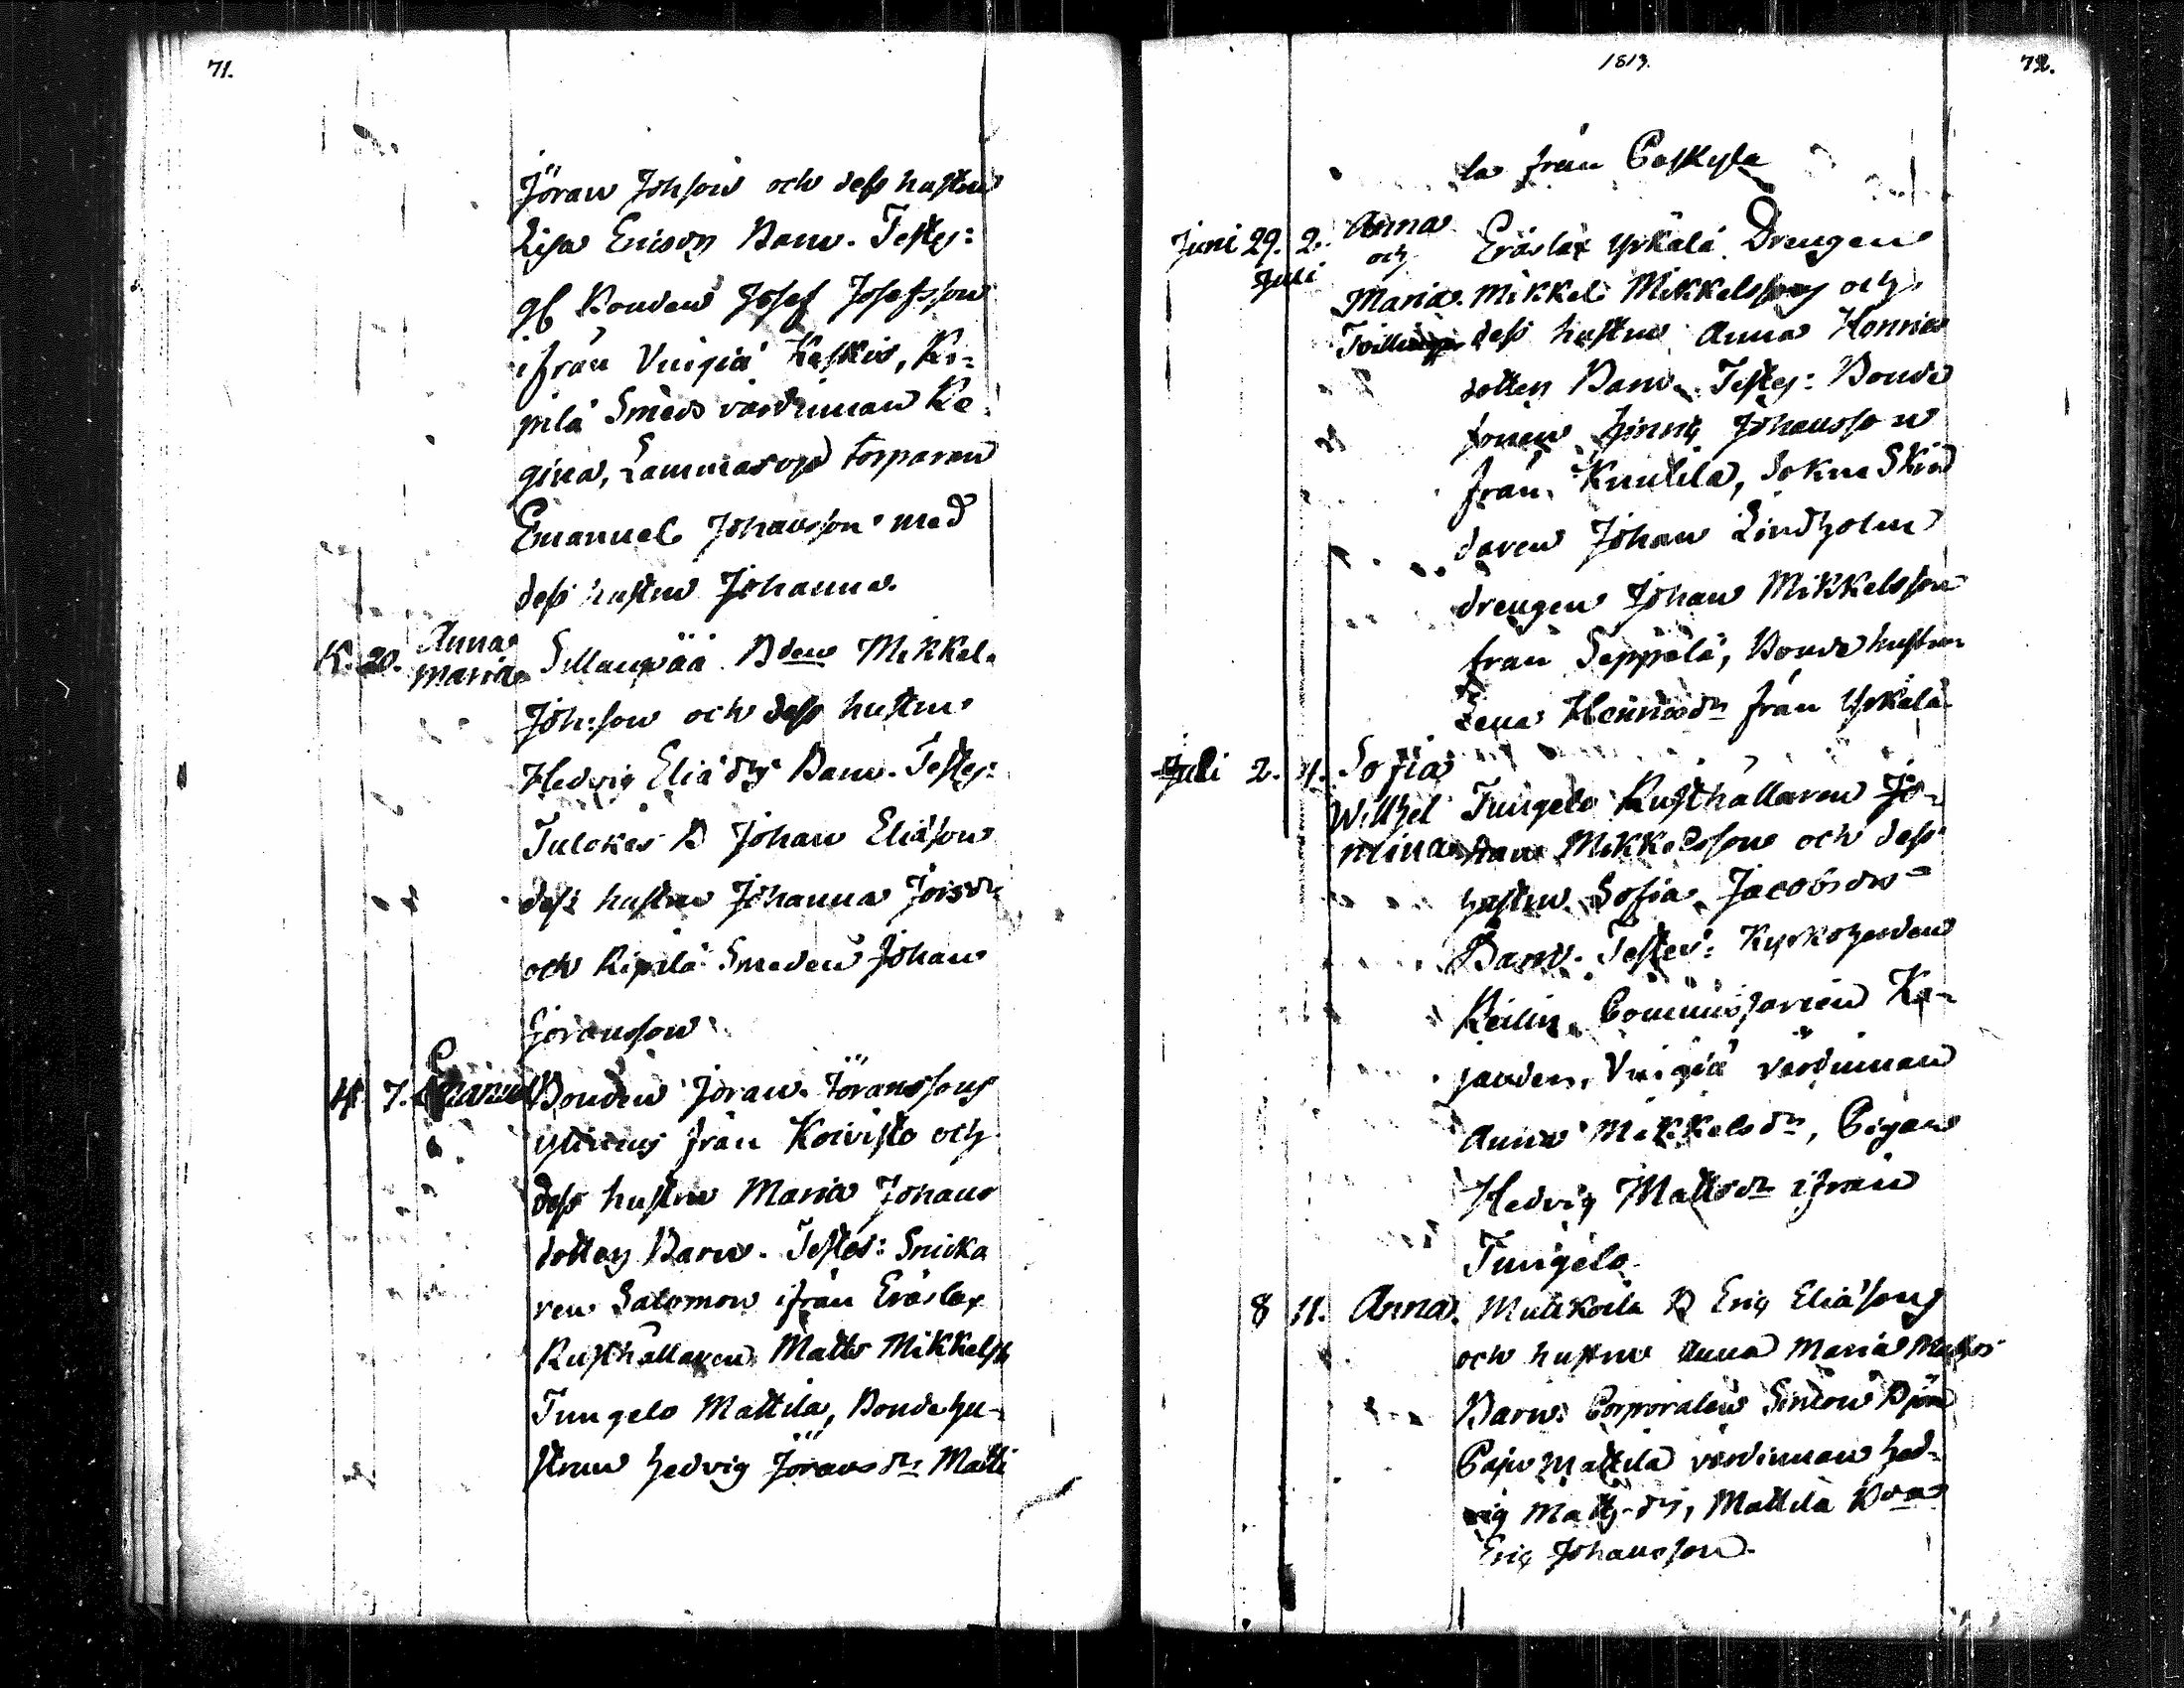 71.
Jöran Johson och dess hustru
Lisa Ericsdr Barn. Testes:
gl Bonden Josef Josefsson
ifrån Vuigiä Keskis, Ri-
pilä Smeds värdinnan Re-
gina, Lammasoja torparen
Emanuel Johansson med
dess hustru Johanna.
K. 20. Anna Maria Sillanpää Bden Mikkel
Joh:son och dess hustru
Hedvig Eliædrs Barn. Testes:
Tulokas B Johan Eliæson
dess hustru Johanna Jörsdr
och Ripilä Smeden Johan
Göransson
4. 7. Emanuel Bonden Jöran Jöranssons
från Koivisto och
dess hustru Maria Johans
dotters Barn. Testes: Snicka
ren Salomon ifrån Eräslax
Rusthållaren Matts Mikkelss
Tungelo Mattila, Bondehu-
strun Hedvig Jöransdr Matti
1813.
72.
la från Paskyla
Juni 29. 2. Juli Anna och Eräslax Yrkälä Drengen
Maria Mikkel Mikkelssons och
Tvillingar dess hustru Anna Henrics
dotters Barn. Testes: Bonde
sonen Johansson
från Knutila, Sokne Skräd
daren Johan Lindholm
drengen Johan Mikkelsson
från Seppälä, Bonde hustrun
Lena Henricsdr från Yrkälä
Juli 2. 4. Sofia
Wilhel Tungelo Rusthållaren Jo-
mina han Mikkelssons och dess
hustru Sofia Jacobsdrs
Barn. Testes: Kyrkoherden
Reilin, Commissarien Ka-
janden, Vuigiä värdinnan
Anna Mikkelsdr, Pigan
Hedvig Mattsdr ifrån
Tungelo
8 11. Anna. Mulikoila B Eric Eliæsons
och hustru Anna Maria
Barn. Corporalen Simon Björn
Paju Mattila värdinnan Hed-
vig Matts dr, Mattila
Eric Johansson.